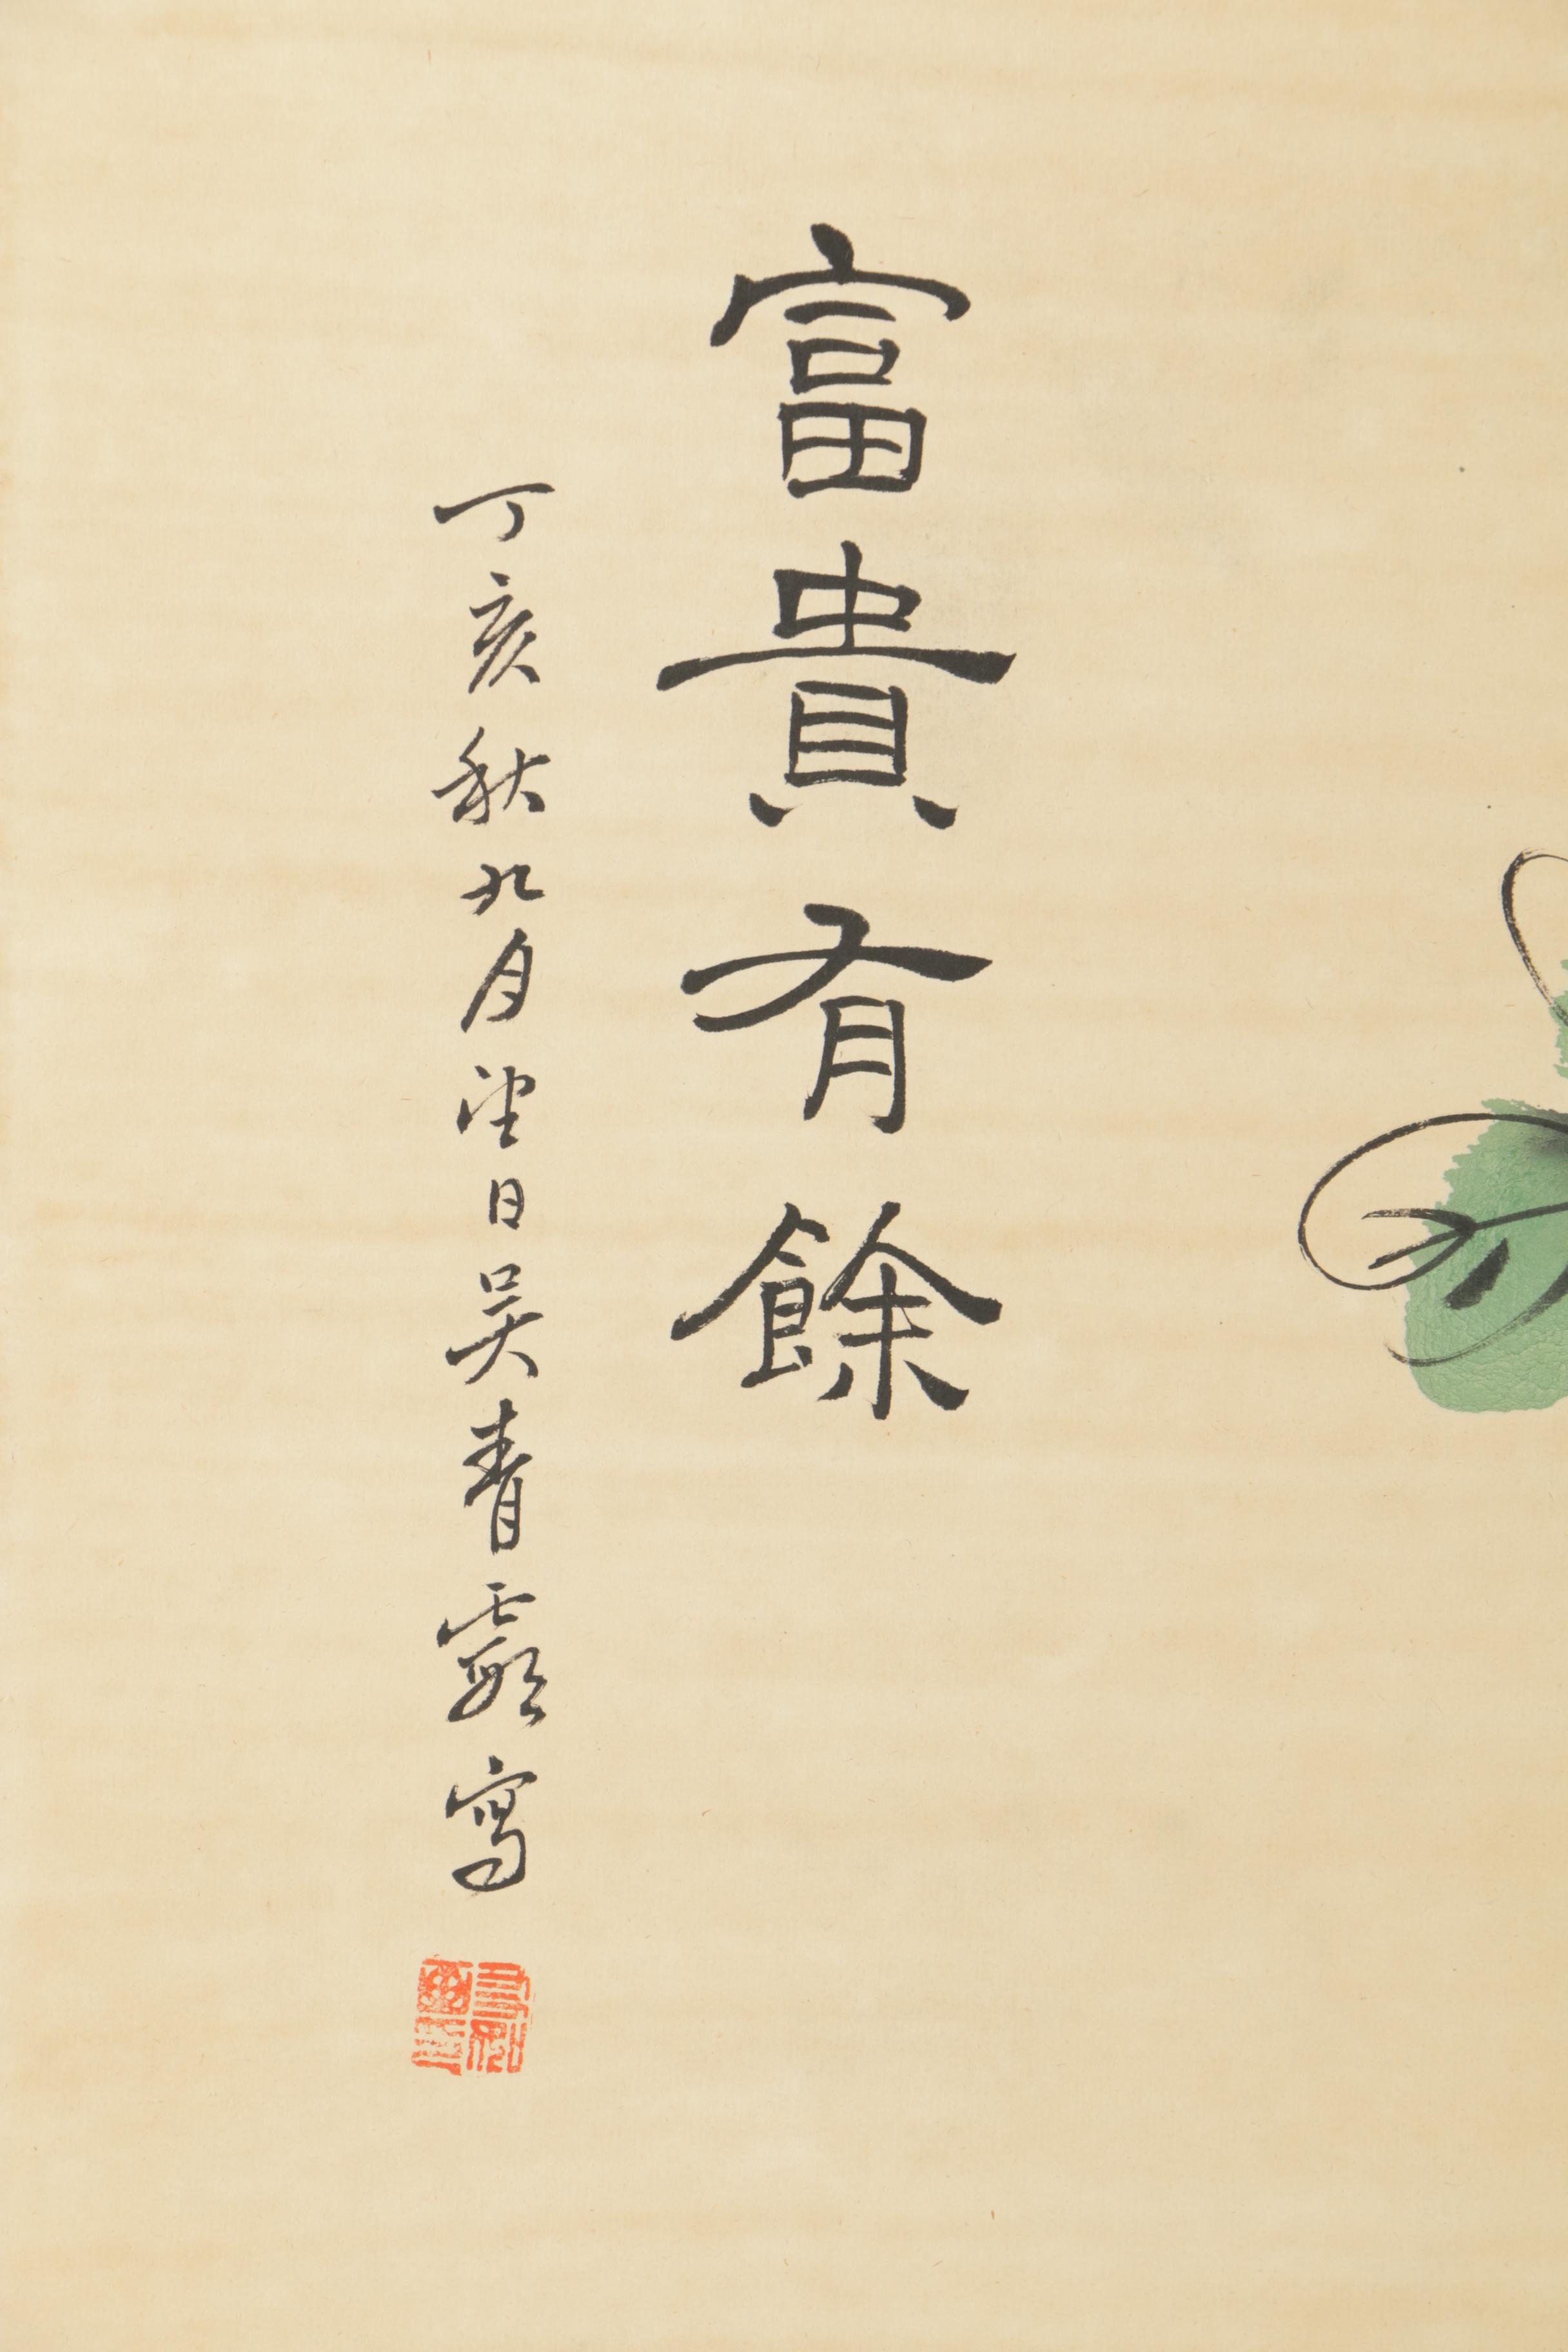 富貴有餘
丁亥秋九月望日吳青霞寫